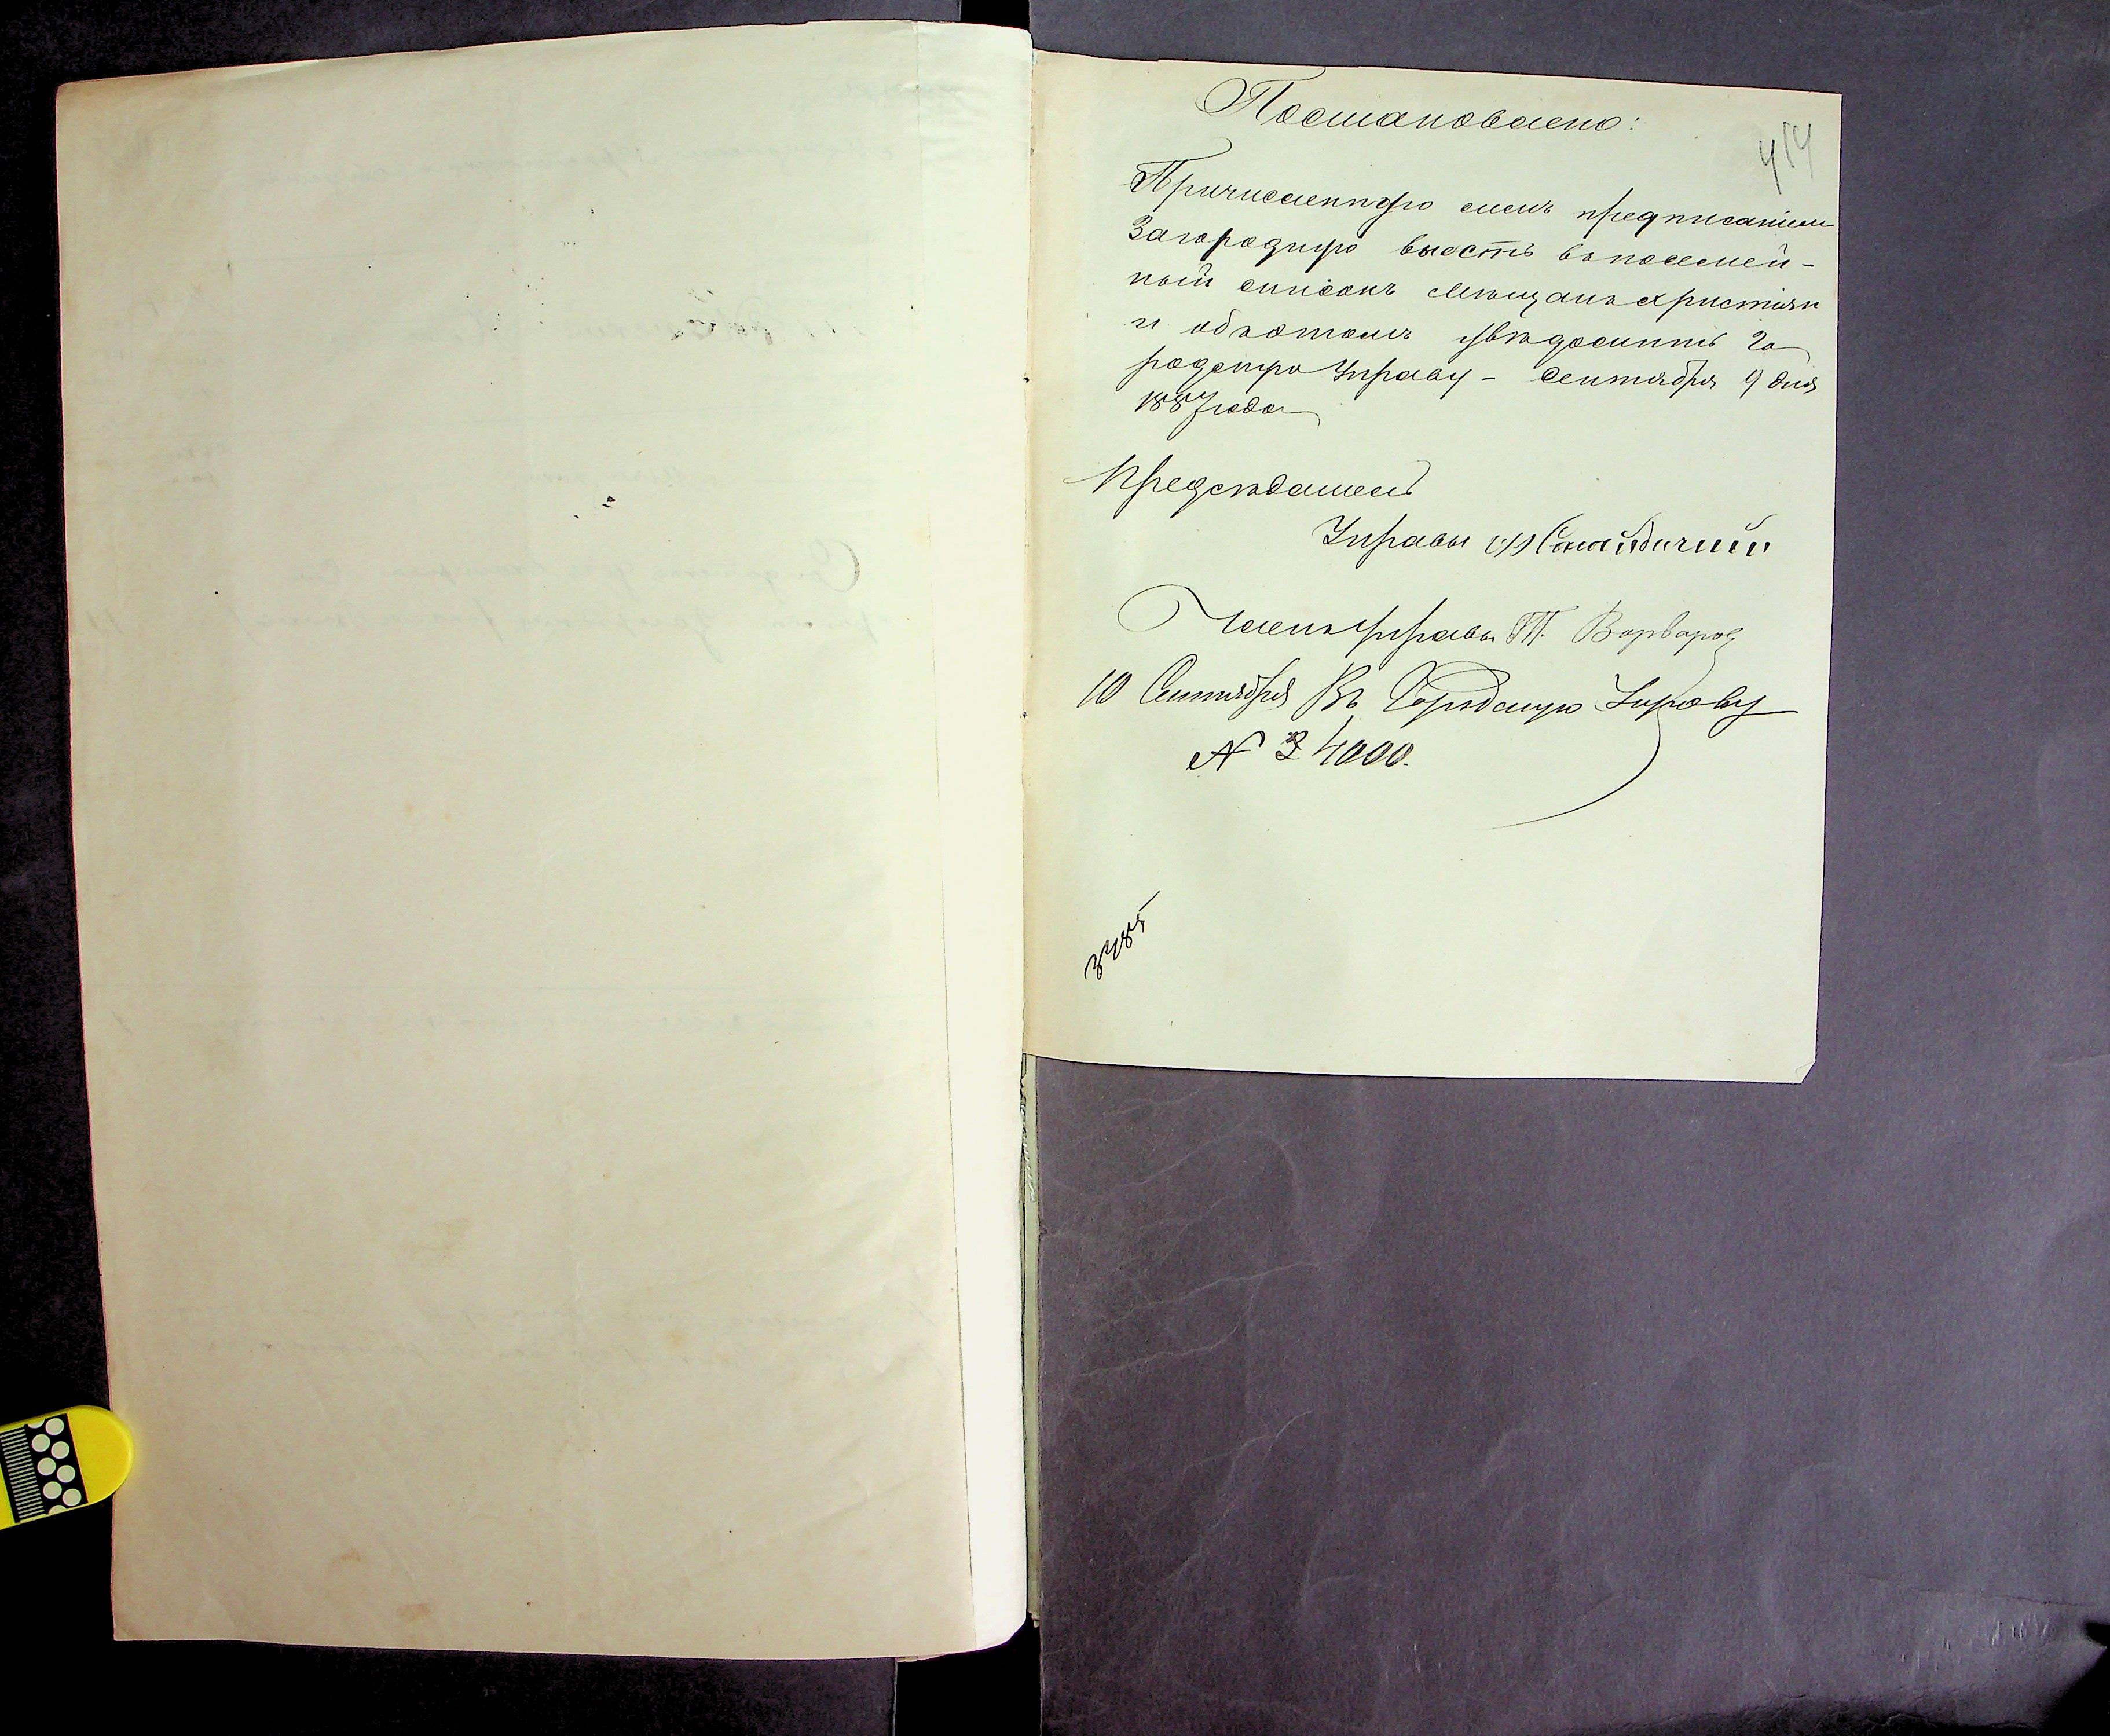 Постановлено:
414
Причисленную симъ предписаніемъ
Загородную внесть въ посемей-
ный списокъ мѣщанъ христіян
и объ этомъ увѣдомить Го
родскую Управу - Сентября 9 дня
1887 года
Предсѣдатель
Управы
Членъ Управы П. Варваров
10 Сентября Въ Городскую Управу
№ 4000.
3785